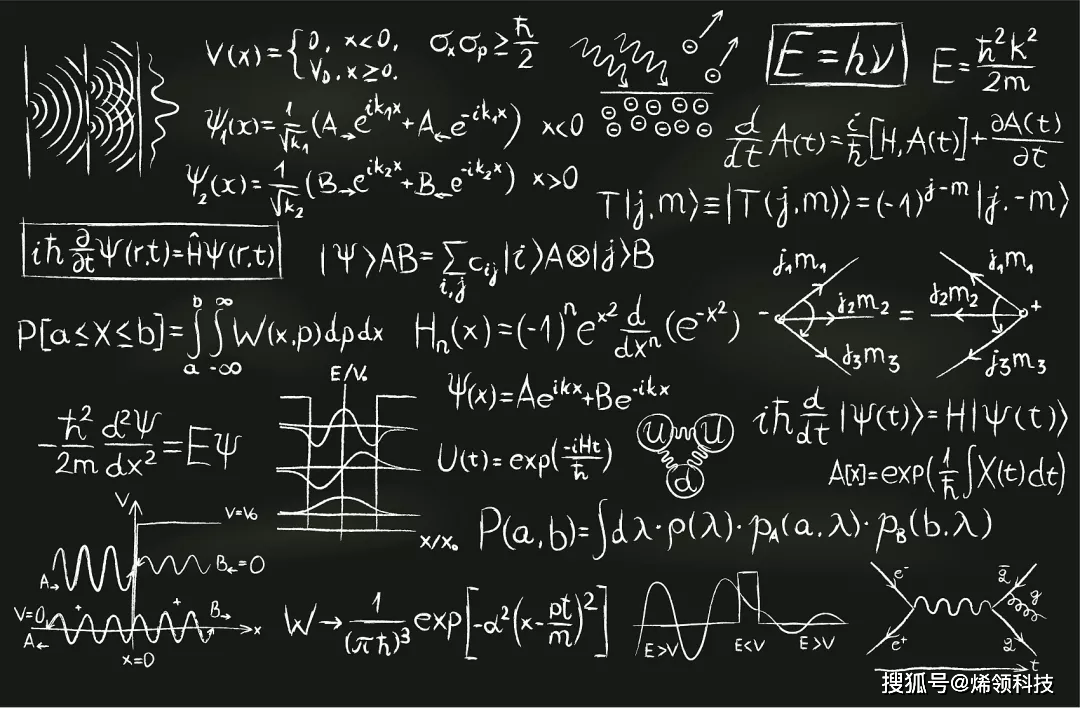 V(x)={0, x<0, V₀, x≥0.
σₓσₚ≥ℏ/2
E=hν
E=ℏ²k²/2m
Ψ₁(x)=1/√k₁(A→e^{ik₁x}+A←e^{-ik₁x}) x<0
d/dt A(t)=i/ℏ[H,A(t)]+∂A(t)/∂t
Ψ₂(x)=1/√k₂(B→e^{ik₂x}+B←e^{-ik₂x}) x>0
T|j,m⟩≡|T(j,m)⟩=(-1)^{j-m}|j.-m⟩
iℏ∂/∂t Ψ(r,t)=ĤΨ(r,t)
|Ψ⟩AB=∑_{i,j}c_{ij}|i⟩A⊗|j⟩B
j₁m₁ j₂m₂ j₃m₃ - = j₁m₁ j₂m₂ j₃m₃ +
P[a≤X≤b]=∫_a^b∫_{-∞}^{∞}W(x,p)dpdx
Hₙ(x)=(-1)ⁿe^{x²}d/dxⁿ(e^{-x²})
E/V₀
x/x₀
Ψ(x)=Ae^{ikx}+Be^{-ikx}
iℏ d/dt|Ψ(t)⟩=H|Ψ(t)⟩
-ℏ²/2m d²Ψ/dx²=EΨ
U(t)=exp(-iHt/ℏ)
u u d
A[x]=exp(1/ℏ∫X(t)dt)
P(a,b)=∫dλ·ρ(λ)·p_A(a,λ)·p_B(b.λ)
V
V=V₀
A→
B←=0
V=0
B→
A←
x
x=0
W→1/(πℏ)³exp[-α²(x-pt/m)²]
E>V E<V E>V
e⁻
e⁺
g
t
搜狐号@烯领科技